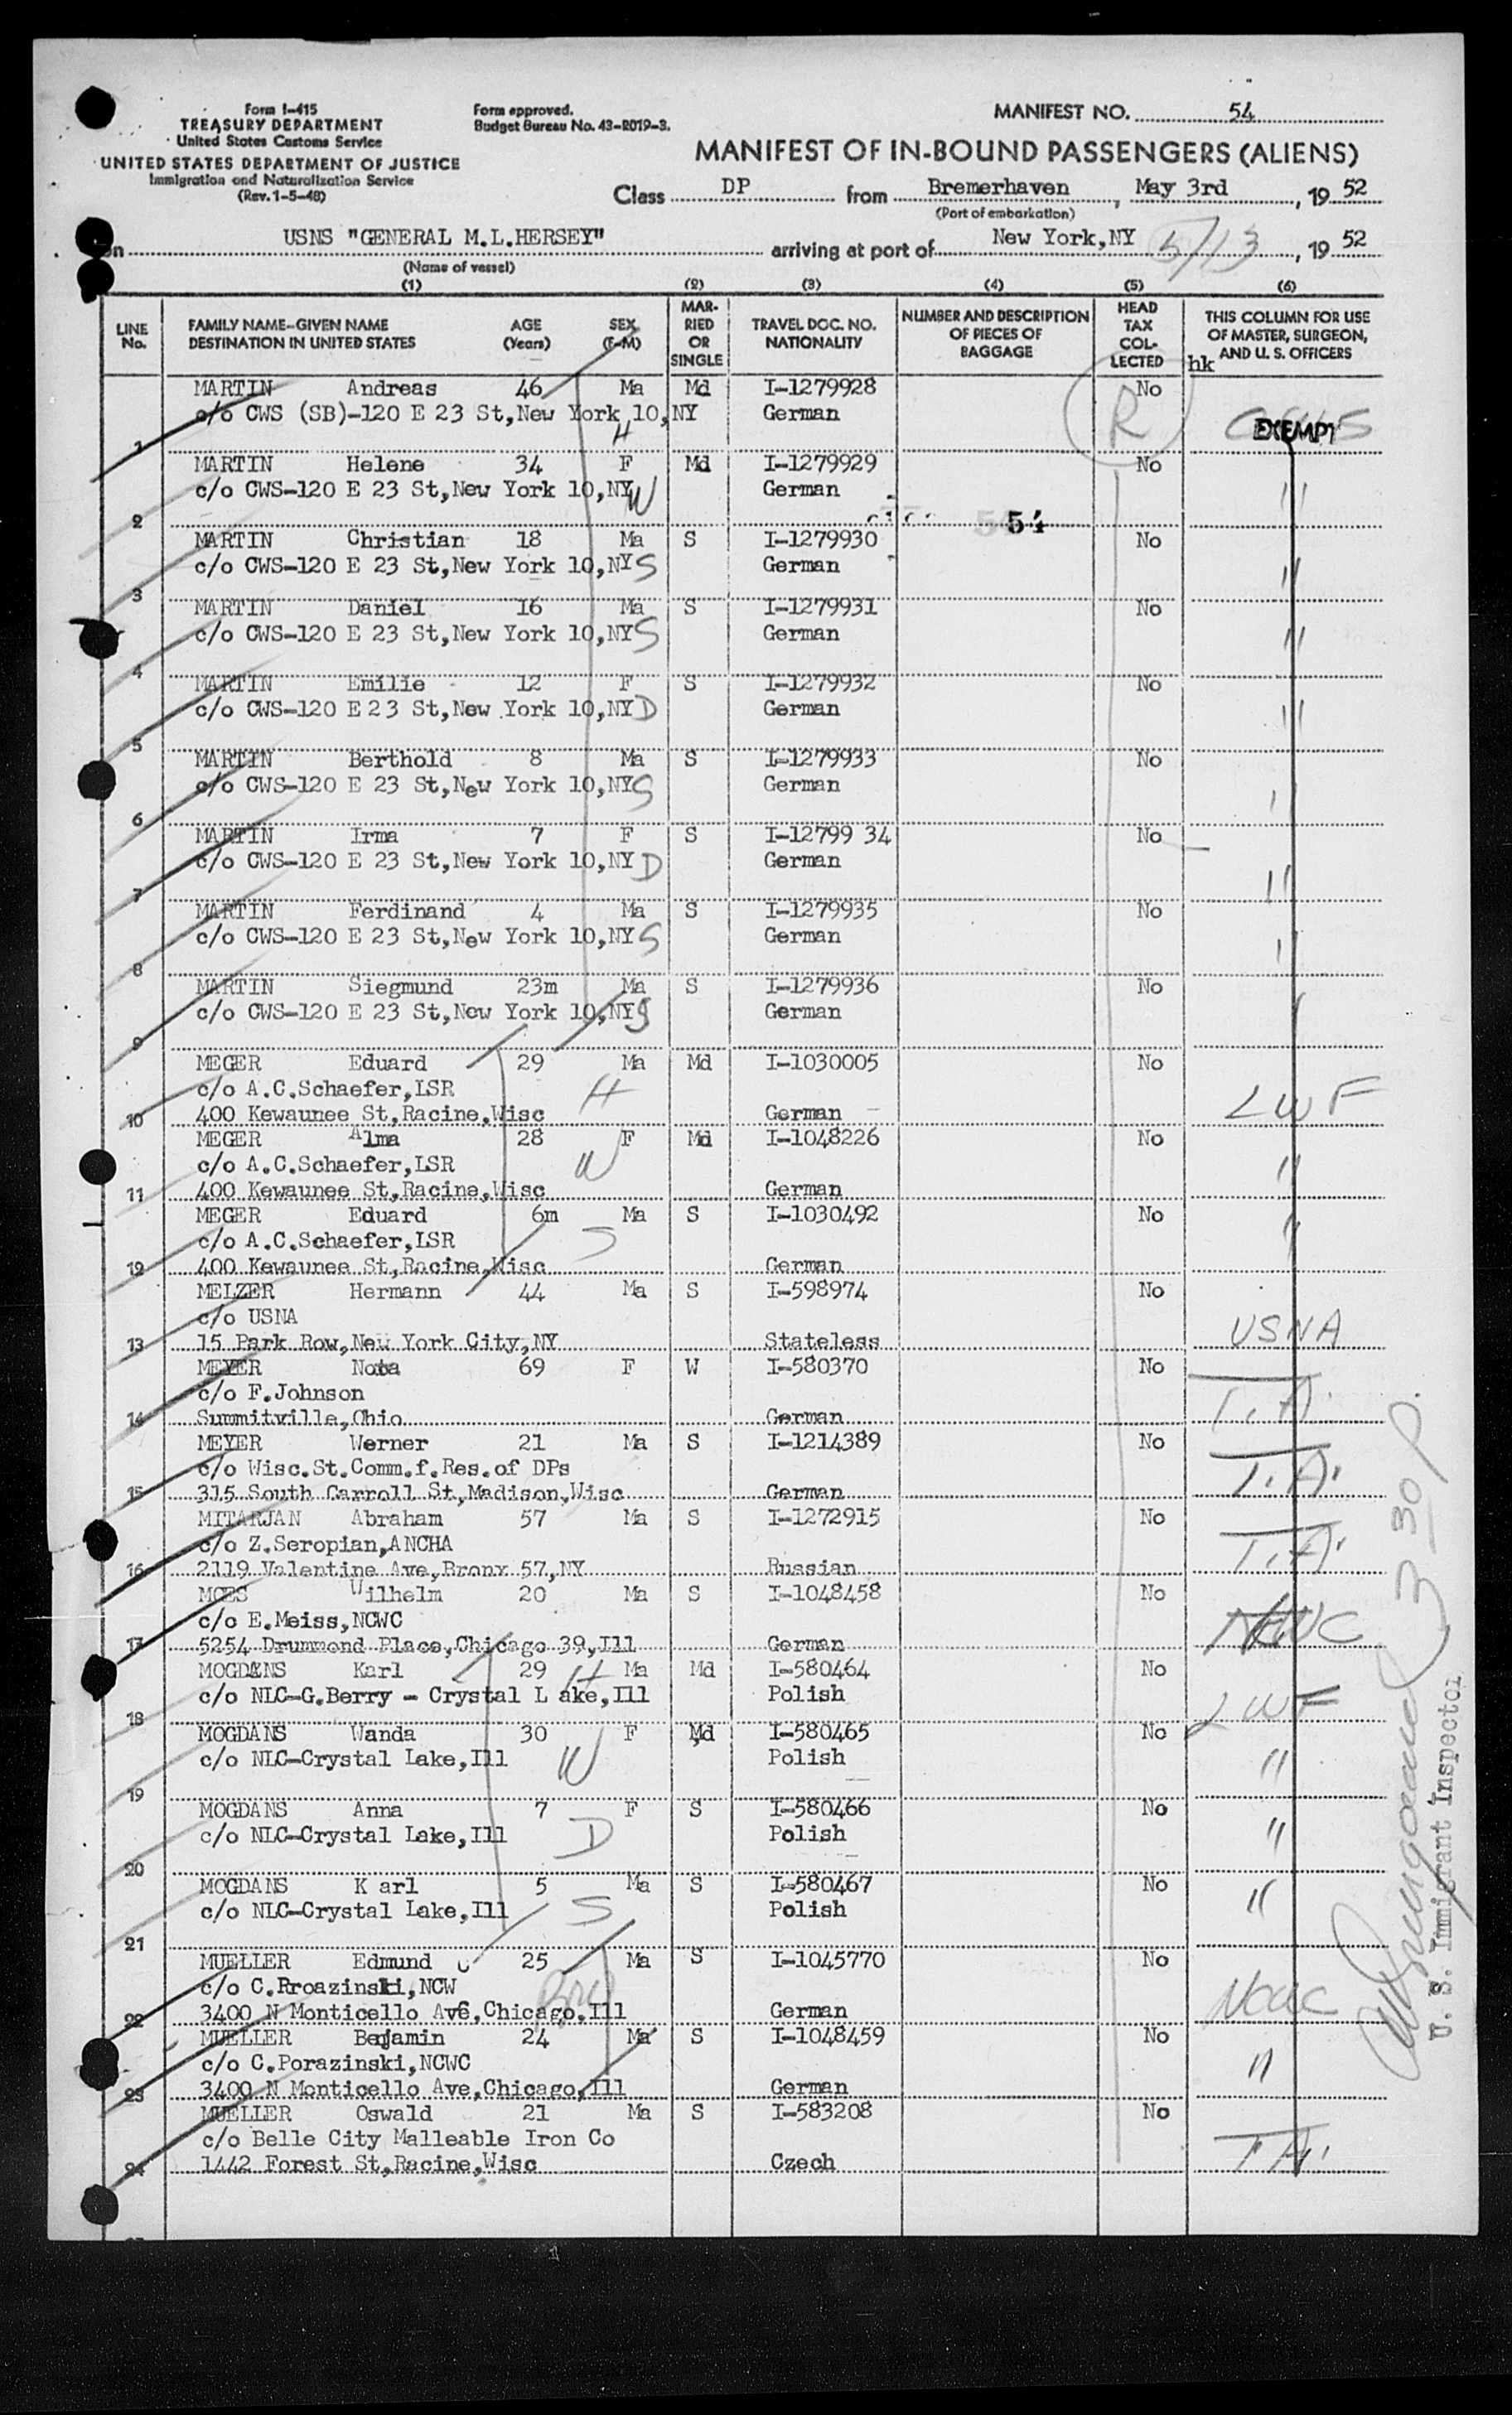 Form I-415
TREASURY DEPARTMENT
United States Customs Service
UNITED STATES DEPARTMENT OF JUSTICE
Immigration and Naturalization Service
(Rev. 1-5-48)
Form approved.
Budget Bureau No. 43-R019-3.
MANIFEST NO. 54
MANIFEST OF IN-BOUND PASSENGERS (ALIENS)
Class DP from Bremerhaven, May 3rd, 19 52
(Port of embarkation)
on USNS "GENERAL M.L.HERSEY" arriving at port of New York,NY 5/13, 19 52
(Name of vessel)
(1) (2) (3) (4) (5) (6)
LINE No. FAMILY NAME-GIVEN NAME DESTINATION IN UNITED STATES AGE (Years) SEX (F-M) MARRIED OR SINGLE TRAVEL DOC. NO. NATIONALITY NUMBER AND DESCRIPTION OF PIECES OF BAGGAGE HEAD TAX COLLECTED THIS COLUMN FOR USE OF MASTER, SURGEON, AND U. S. OFFICERS
hk
MARTIN Andreas 46 Ma Md I-1279928 No
c/o CWS (SB)-120 E 23 St,New York 10,NY German R EXEMPT
1 H
MARTIN Helene 34 F Md I-1279929 No
c/o CWS-120 E 23 St,New York 10,NY W German "
2 54
MARTIN Christian 18 Ma S I-1279930 No
c/o CWS-120 E 23 St,New York 10,NY S German "
3
MARTIN Daniel 16 Ma S I-1279931 No
c/o CWS-120 E 23 St,New York 10,NY S German "
4
MARTIN Emilie 12 F S I-1279932 No
c/o CWS-120 E 23 St,New York 10,NY D German "
5
MARTIN Berthold 8 Ma S I-1279933 No
c/o CWS-120 E 23 St,New York 10,NY S German "
6
MARTIN Irma 7 F S I-12799 34 No
c/o CWS-120 E 23 St,New York 10,NY D German "
7
MARTIN Ferdinand 4 Ma S I-1279935 No
c/o CWS-120 E 23 St,New York 10,NY S German "
8
MARTIN Siegmund 23m Ma S I-1279936 No
c/o CWS-120 E 23 St,New York 10,NY S German "
9
MEGER Eduard 29 Ma Md I-1030005 No
c/o A.C.Schaefer,LSR H LWF
10 400 Kewaunee St,Racine,Wisc German
MEGER Alma 28 F Md I-1048226 No
c/o A.C.Schaefer,LSR W "
11 400 Kewaunee St,Racine,Wisc German
MEGER Eduard 6m Ma S I-1030492 No
c/o A.C.Schaefer,LSR S "
12 400 Kewaunee St,Racine,Wisc German
MELZER Hermann 44 Ma S I-598974 No
c/o USNA USNA
13 15 Park Row,New York City,NY Stateless
MEYER Nota 69 F W I-580370 No
c/o F.Johnson T.A.
14 Summitville,Ohio German
MEYER Werner 21 Ma S I-1214389 No
c/o Wisc.St.Comm.f.Res.of DPs T.A.
15 315 South Carroll St,Madison,Wisc German
MITARJAN Abraham 57 Ma S I-1272915 No
c/o Z.Seropian,ANCHA T.A.
16 2119 Valentine Ave,Bronx 57,NY Russian
MOES Wilhelm 20 Ma S I-1048458 No
c/o E.Meiss,NCWC NCWC
17 5254 Drummond Place,Chicago 39,Ill German
MOGDANS Karl 29 H Ma Md I-580464 No
c/o NLC-G.Berry - Crystal L ake,Ill Polish LWF
18
MOGDANS Wanda 30 F Md I-580465 No
c/o NLC-Crystal Lake,Ill W Polish "
19
MOGDANS Anna 7 F S I-580466 No
c/o NLC-Crystal Lake,Ill D Polish "
20
MOGDANS K arl 5 Ma S I-580467 No
c/o NLC-Crystal Lake,Ill S Polish "
21
MUELLER Edmund 25 Ma S I-1045770 No
c/o C.Proazinski,NCW Bro NCWC
22 3400 N Monticello Ave,Chicago,Ill German
MUELLER Benjamin 24 Ma S I-1048459 No
c/o C.Porazinski,NCWC "
23 3400 N Monticello Ave,Chicago,Ill German
MUELLER Oswald 21 Ma S I-583208 No
c/o Belle City Malleable Iron Co T.A.
24 1442 Forest St,Racine,Wisc Czech
3 30 P
U. S. Immigrant Inspector